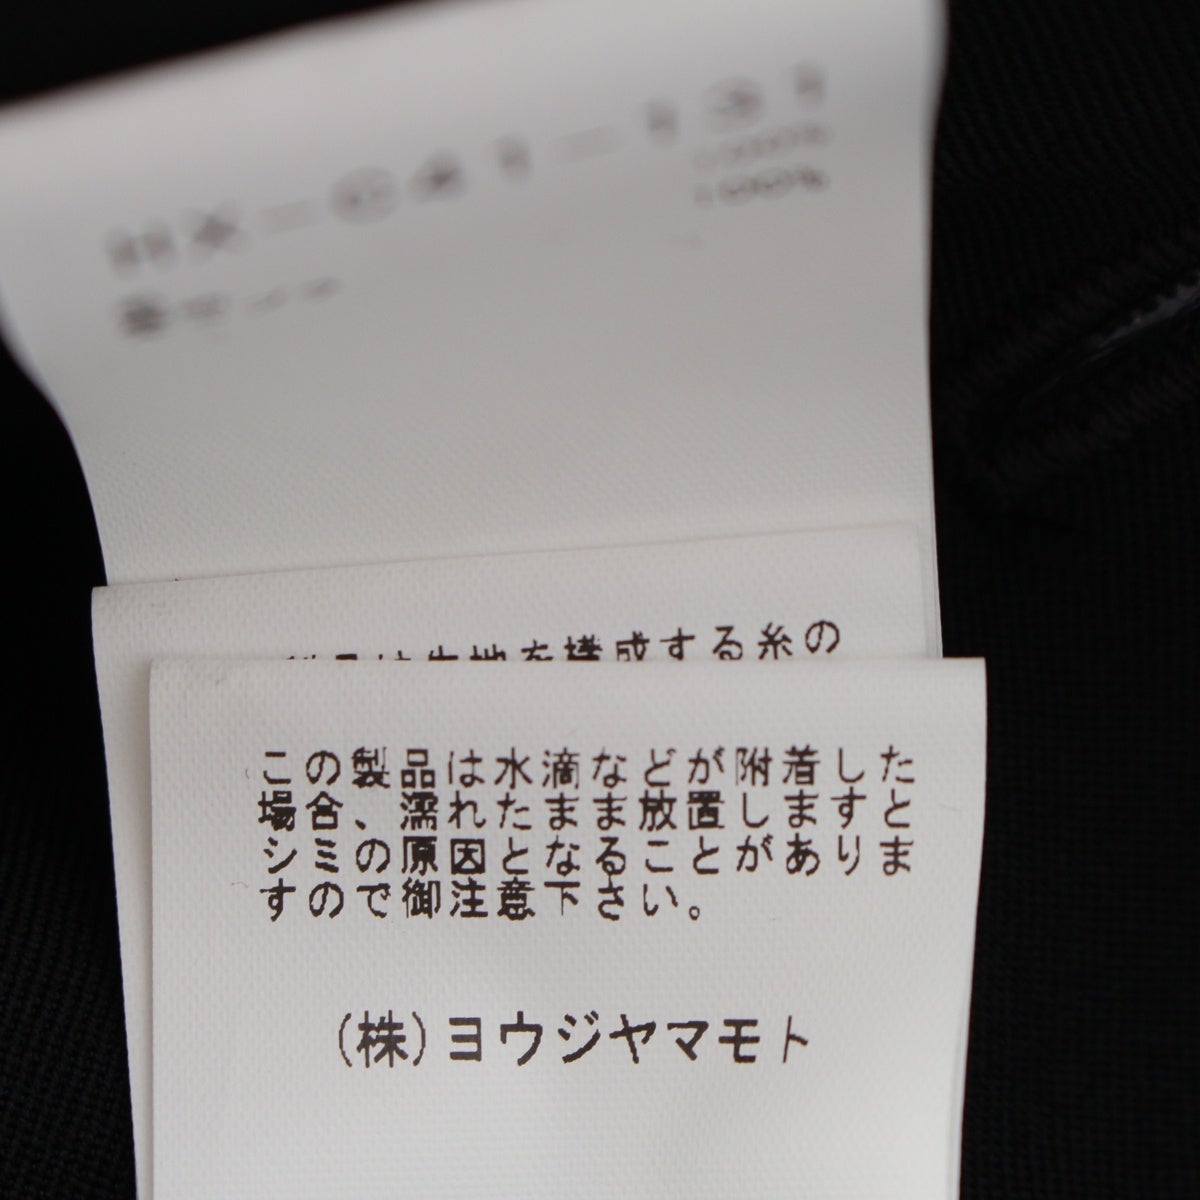 100%
100%
生地を構成する糸の
この製品は水滴などが附着した
場合、濡れたまま放置しますと
シミの原因となることがありま
すので御注意下さい。
(株)ヨウジヤマモト